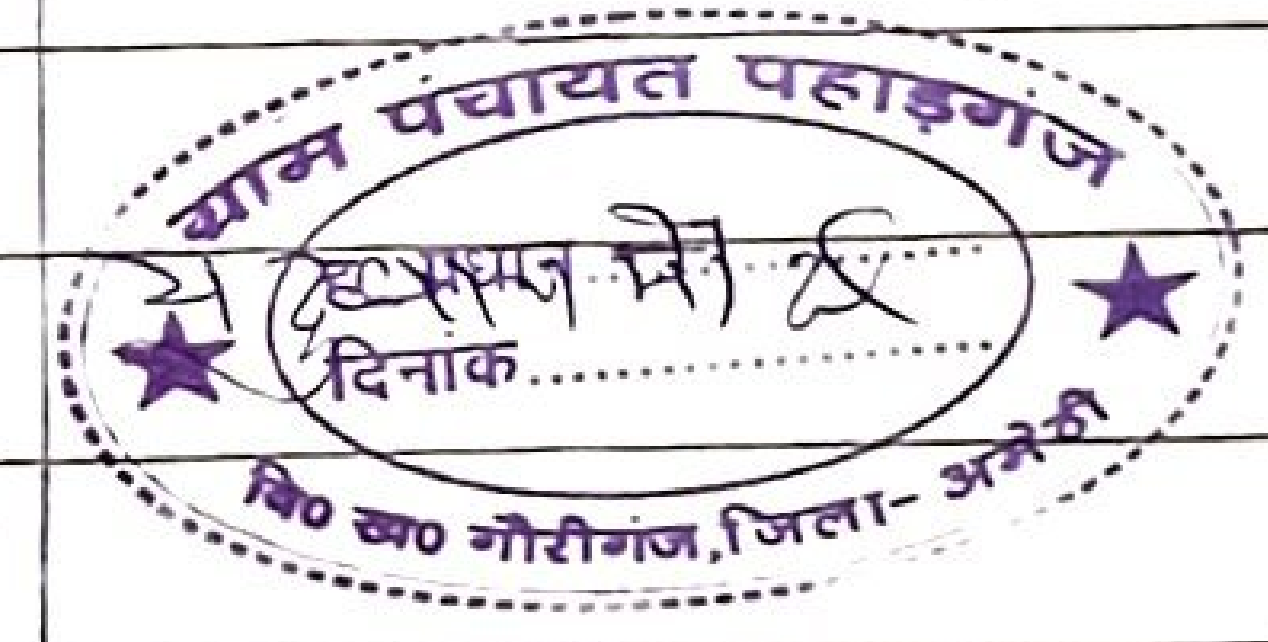 ग्राम पंचायत पहाड़गंज
प्रधान
दिनांक
वि० ख० गौरीगंज, जिला- अमेठी